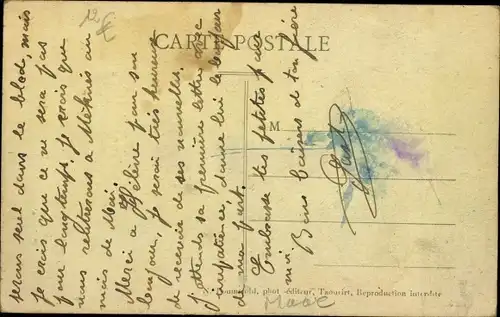 CARTE POSTALE
serons seul dans le bled, mais
je crois que ce ne sera pas
pour longtemps. Je crois que
nous rentrerons à Meknès au
mois de Mai.
Merci à Hélène pour son
bonjour, je serai très heureux
de recevoir de ses nouvelles.
J'attends sa première lettre avec
impatience, donne lui le bonjour
de ma part.
Embrasse les petites pour
moi. Bons baisers de ton frère
M
phot-éditeur, Taourirt, Reproduction interdite
Maroc
12 €